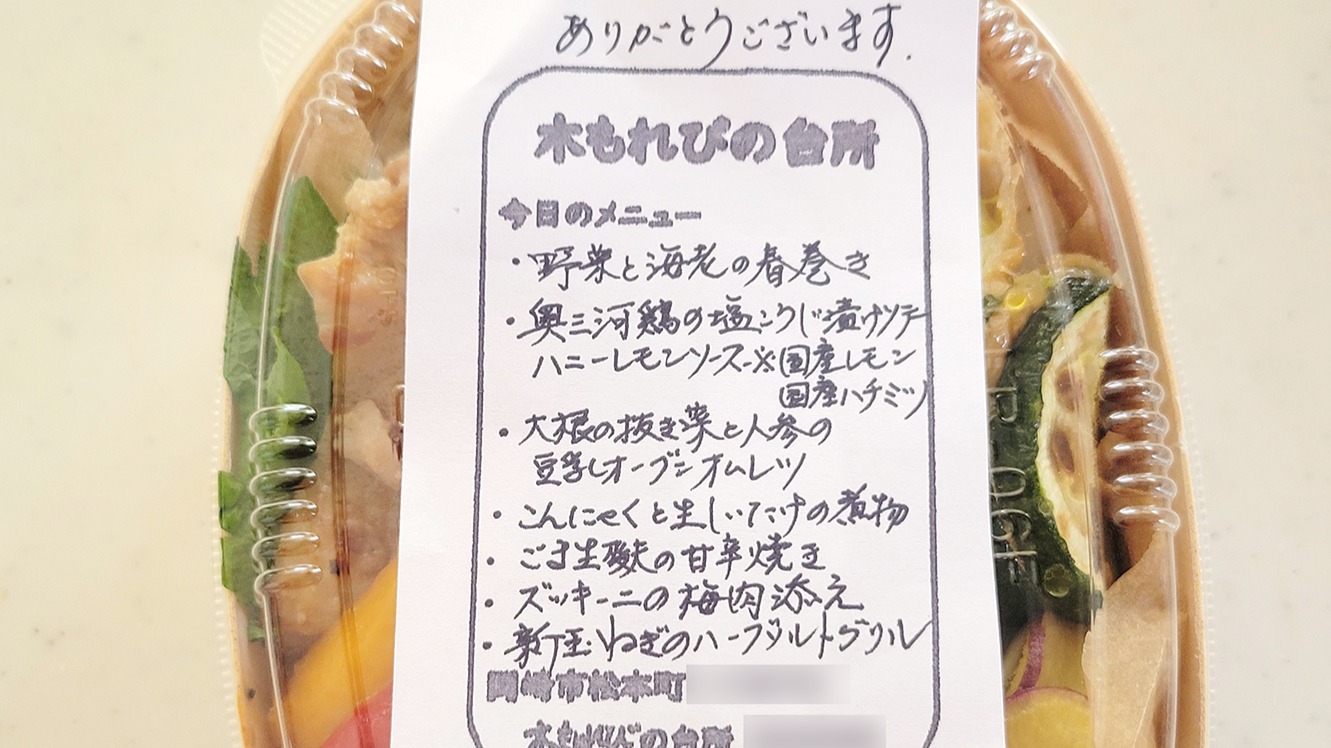 ありがとうございます.
木もれびの台所
今日のメニュー
・野菜と海老の春巻き
・奥三河鶏の塩こうじ漬けソテー
ハニーレモンソース※国産レモン
国産ハチミツ
・大根の抜き菜と人参の
豆乳オーブンオムレツ
・こんにゃくと生しいたけの煮物
・ごま生麩の甘辛焼き
・ズッキーニの梅肉添え
・新玉ねぎのハーブソルトグリル
岡崎市松本町
木もれびの台所